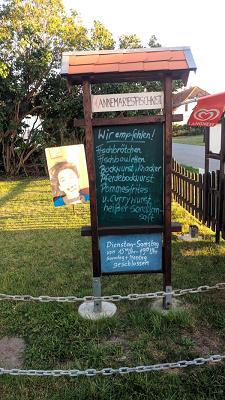 ANNEMARIES FISCHHÜT
Wir empfehlen!
Fischbrötchen
Fischbouletten
Bockwurst, Knacker
Pferdebockwurst
Pommes frites
u. Currywurst
heißer Sanddorn-
saft
LANGNESE
Dienstag-Samstag
von 11⁰⁰ Uhr-17⁰⁰ Uhr
Sonntag + Montag
geschlossen